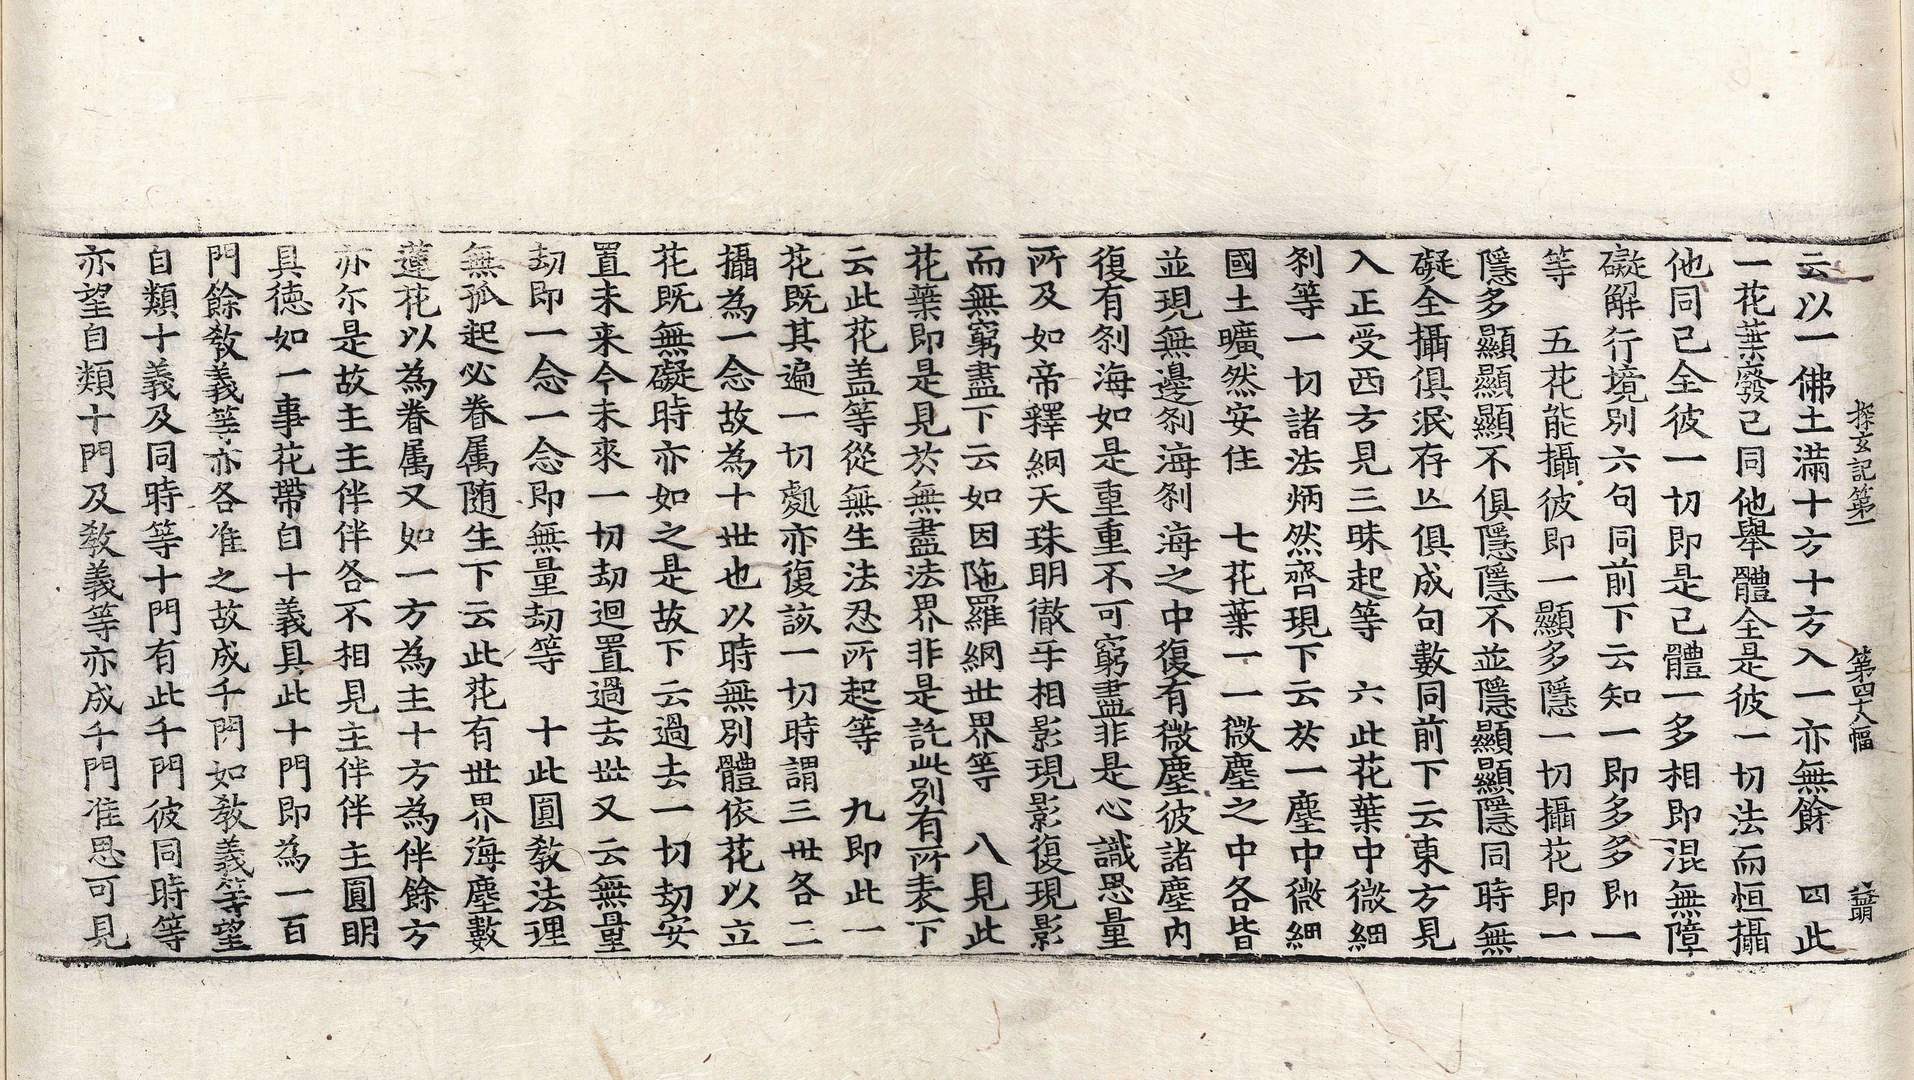 探玄記第一　第四十八幅　號明
云以一佛土滿十方十方入一亦無餘　四此
一花葉癈己同他舉體全是彼一切法而恒攝
他同己全彼一切即是己體一多相即混無障
礙解行境別六句同前下云知一即多多即一
等　五花能攝彼即一顯多隱一切攝花即一
隱多顯顯顯不俱隱隱不並隱顯顯隱同時無
礙全攝俱泯存亡俱成句數同前下云東方見
入正受西方見三昧起等　六此花葉中微細
刹等一切諸法炳然齊現下云於一塵中微細
國土曠然安住　七花葉一一微塵之中各皆
並現無邊刹海刹海之中復有微塵彼諸塵內
復有刹海如是重重不可窮盡非是心識思量
所及如帝釋網天珠明徹互相影現影復現影
而無窮盡下云如因陁羅網世界等　八見此
花葉即是見於無盡法界非是託此別有所表下
云此花盖等從無生法忍所起等　九即此一
花既其遍一切處亦復該一切時謂三世各二
攝為一念故為十世也以時無別體依花以立
花既無礙時亦如之是故下云過去一切劫安
置未来今未來一切劫迴置過去世又云無量
劫即一念一念即無量劫等　十此圓教法理
無孤起必眷属随生下云此花有世界海塵數
蓮花以為眷属又如一方為主十方為伴餘方
亦尔是故主主伴伴各不相見主伴伴主圓明
具德如一事花帶自十義具此十門即為一百
門餘教義等亦各准之故成千門如教義等望
自類十義及同時等十門有此千門彼同時等
亦望自類十門及教義等亦成千門准思可見